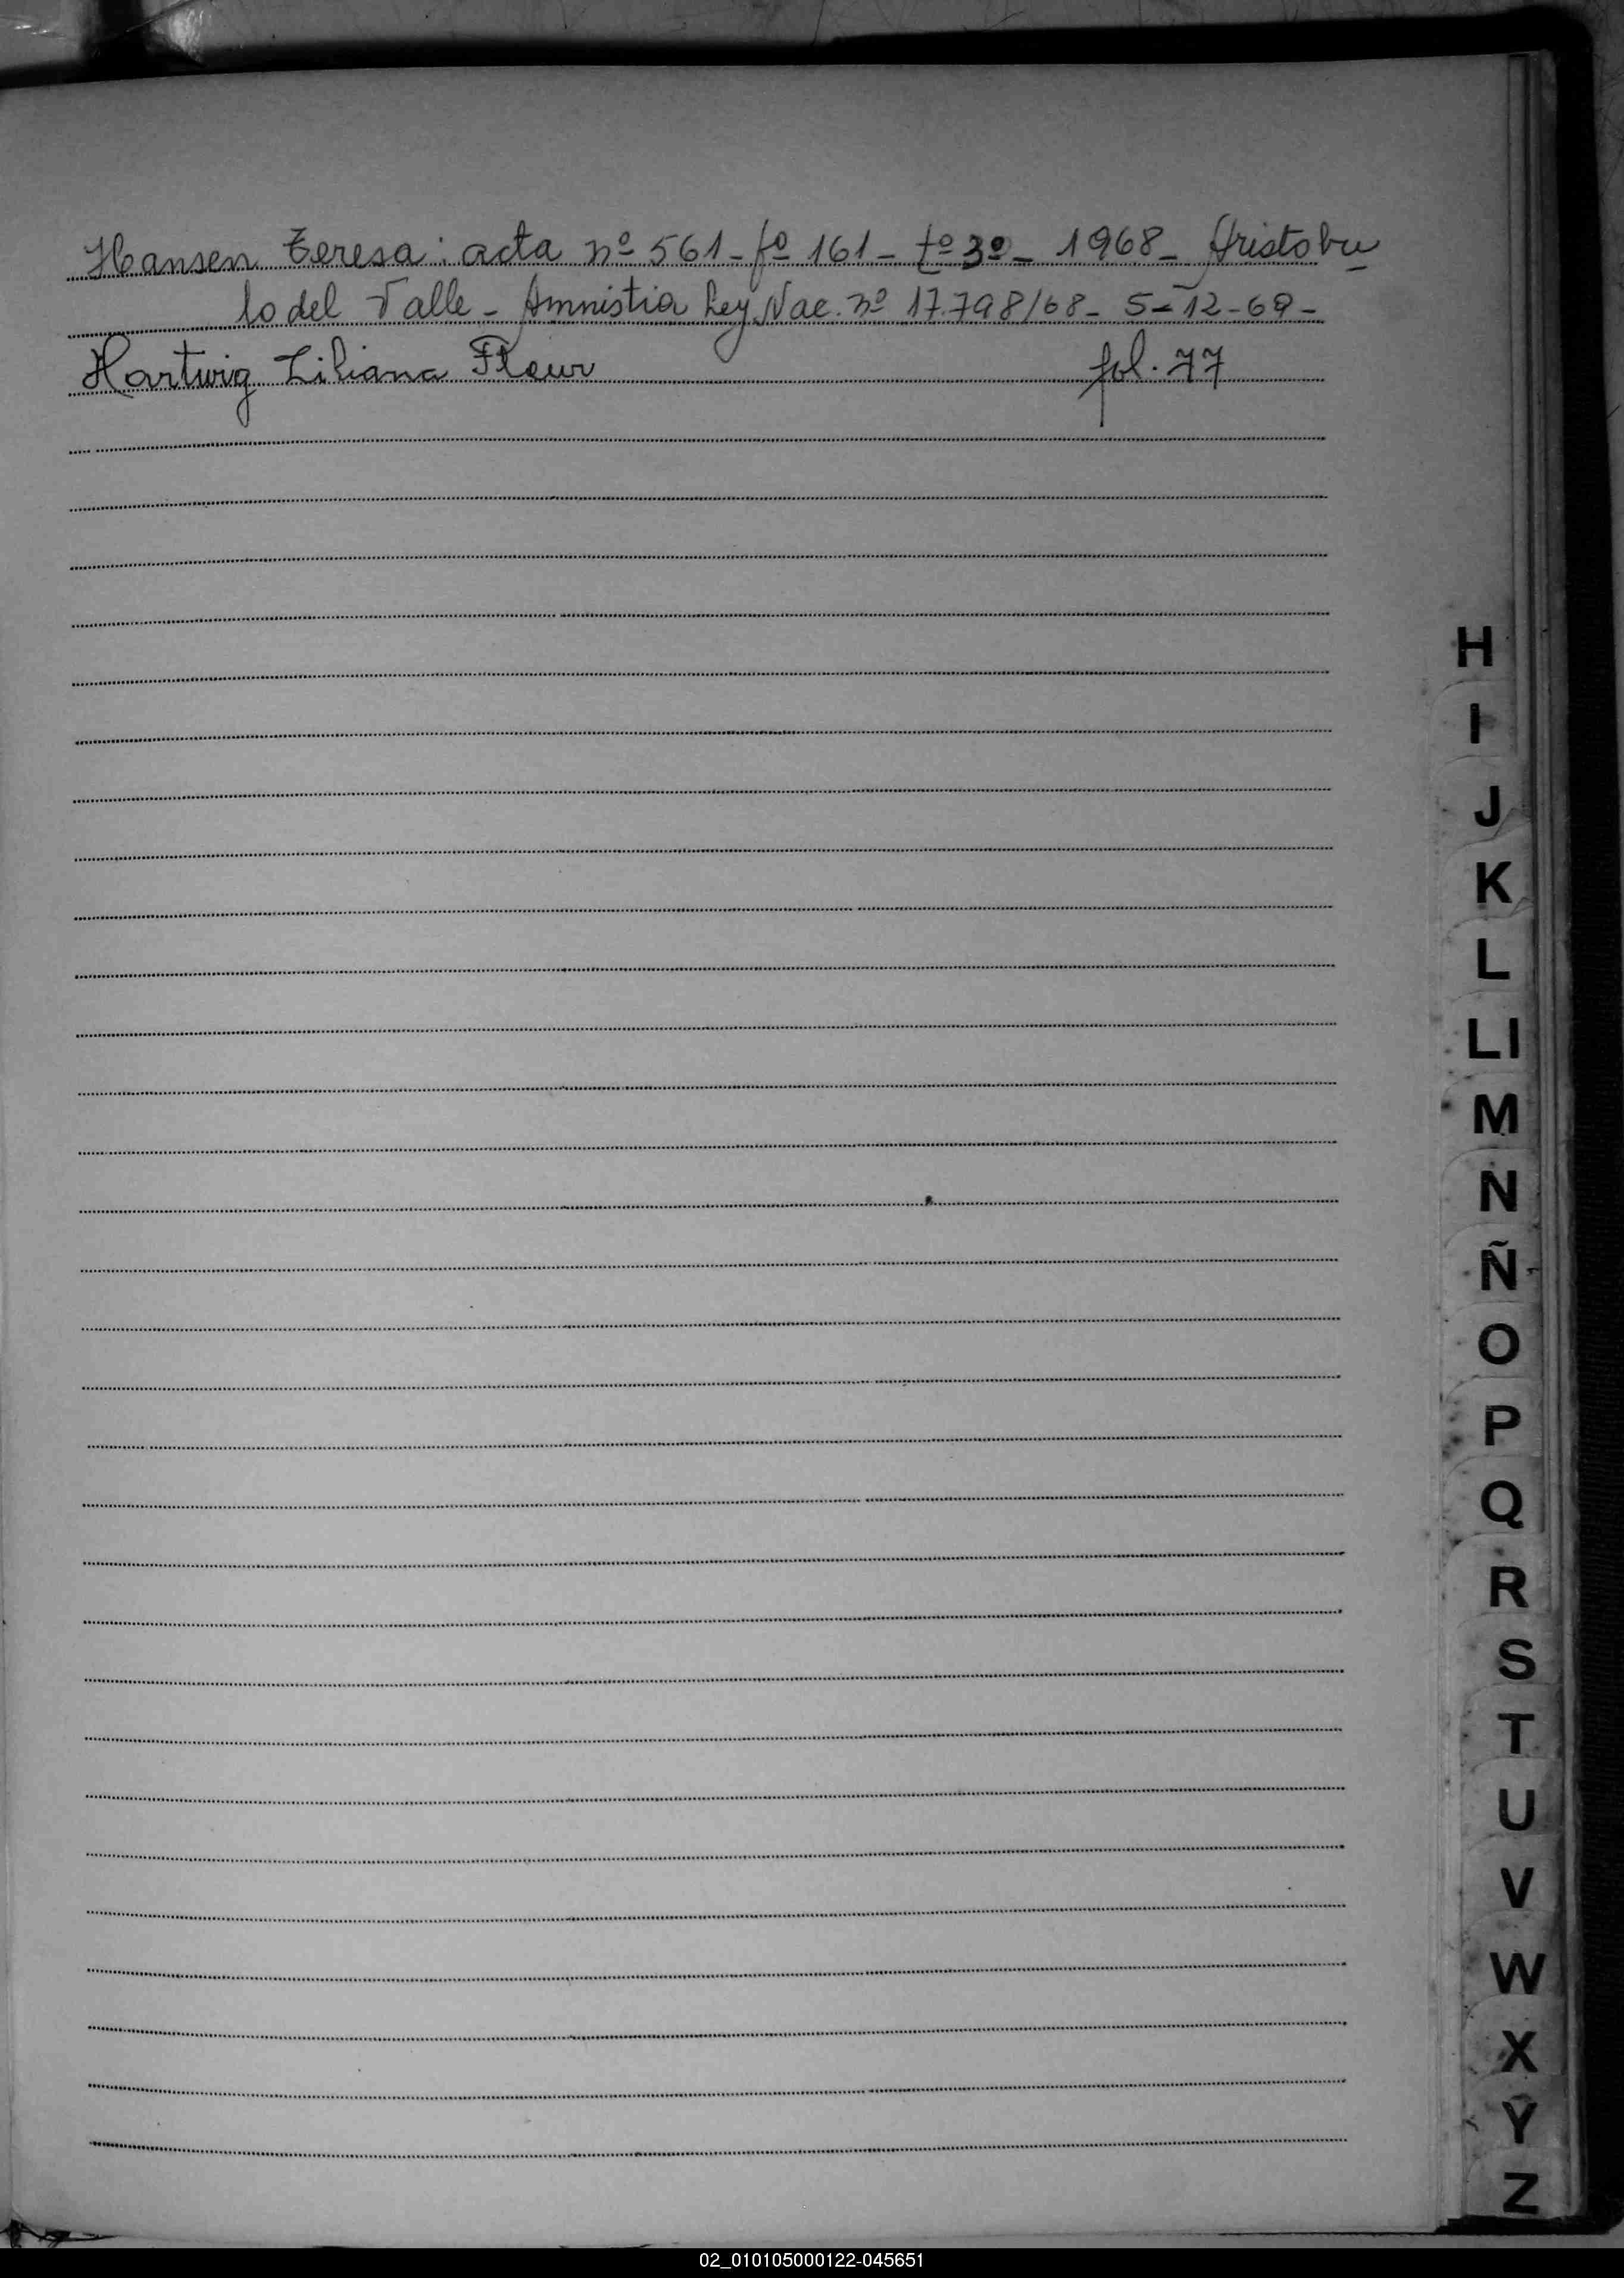 Hansen Teresa: acta nº 561 - fº 161 - tº 3º - 1968 - Aristobu
lo del Valle - Amnistia Ley Nac. nº 17.798/68 - 5-12-69 -
Hartwig Liliana Fleur fol. 77
H
I
J
K
L
Ll
M
N
Ñ
O
P
Q
R
S
T
U
V
W
X
Y
Z
02_010105000122-045651